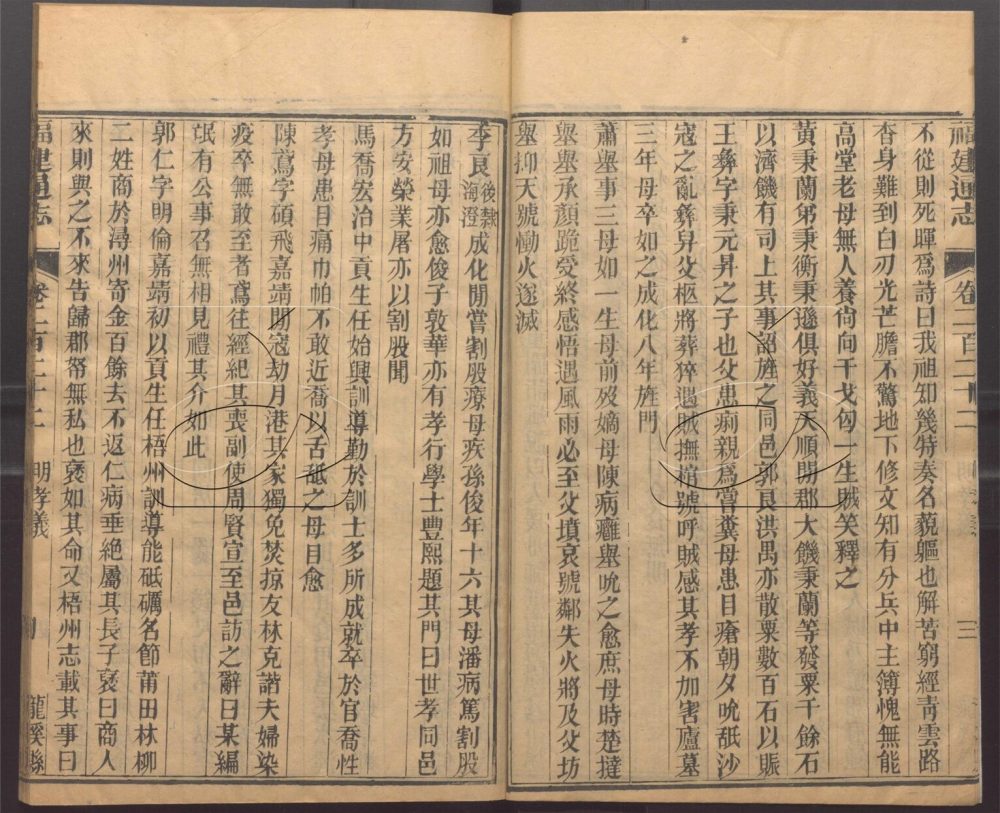 福建通志 卷二百二十二 三
不從則死暉爲詩曰我祖知幾特奏名藐軀也解苦窮經靑雲路
杳身難到白刃光芒膽不驚地下修文知有分兵中主簿愧無能
高堂老母無人養尙向干戈匃一生賊笑釋之
黃秉蘭弟秉衡秉遜俱好義天順閒郡大饑秉蘭等發粟千餘石
以濟饑有司上其事詔旌之同邑郭良洪禺亦散粟數百石以賑
王彝字秉元昇之子也父患痢親爲嘗糞母患目瘡朝夕吮舐沙
寇之亂彝舁父柩將葬猝遇賊撫棺號呼賊感其孝不加害廬墓
三年母卒如之成化八年旌門
蕭壆事三母如一生母前歿嫡母陳病癰壆吮之愈庶母時楚撻
壆壆承顏跪受終感悟遇風雨必至父墳哀號鄰失火將及父坊
壆抑天號慟火遂滅
李良後隸海澄成化閒嘗割股療母疾孫俊年十六其母潘病篤割股
如祖母亦愈俊子敦華亦有孝行學士豐熙題其門曰世孝同邑
方安榮業屠亦以割股聞
馬喬宏治中貢生任始興訓導勤於訓士多所成就卒於官喬性
孝母患目痛巾帕不敢近喬以舌舐之母目愈
陳鳶字碩飛嘉靖閒寇劫月港其家獨免焚掠友林克諧夫婦染
疫卒無敢至者鳶往經紀其喪副使周賢宣至邑訪之辭曰某編
氓有公事召無相見禮其介如此
郭仁字明倫嘉靖初以貢生任梧州訓導能砥礪名節莆田林柳
二姓商於潯州寄金百餘去不返仁病垂絕屬其長子襃曰商人
來則與之不來告歸郡帑無私也襃如其命又梧州志載其事曰
福建通志 卷二百二十二 明孝義 龍溪縣